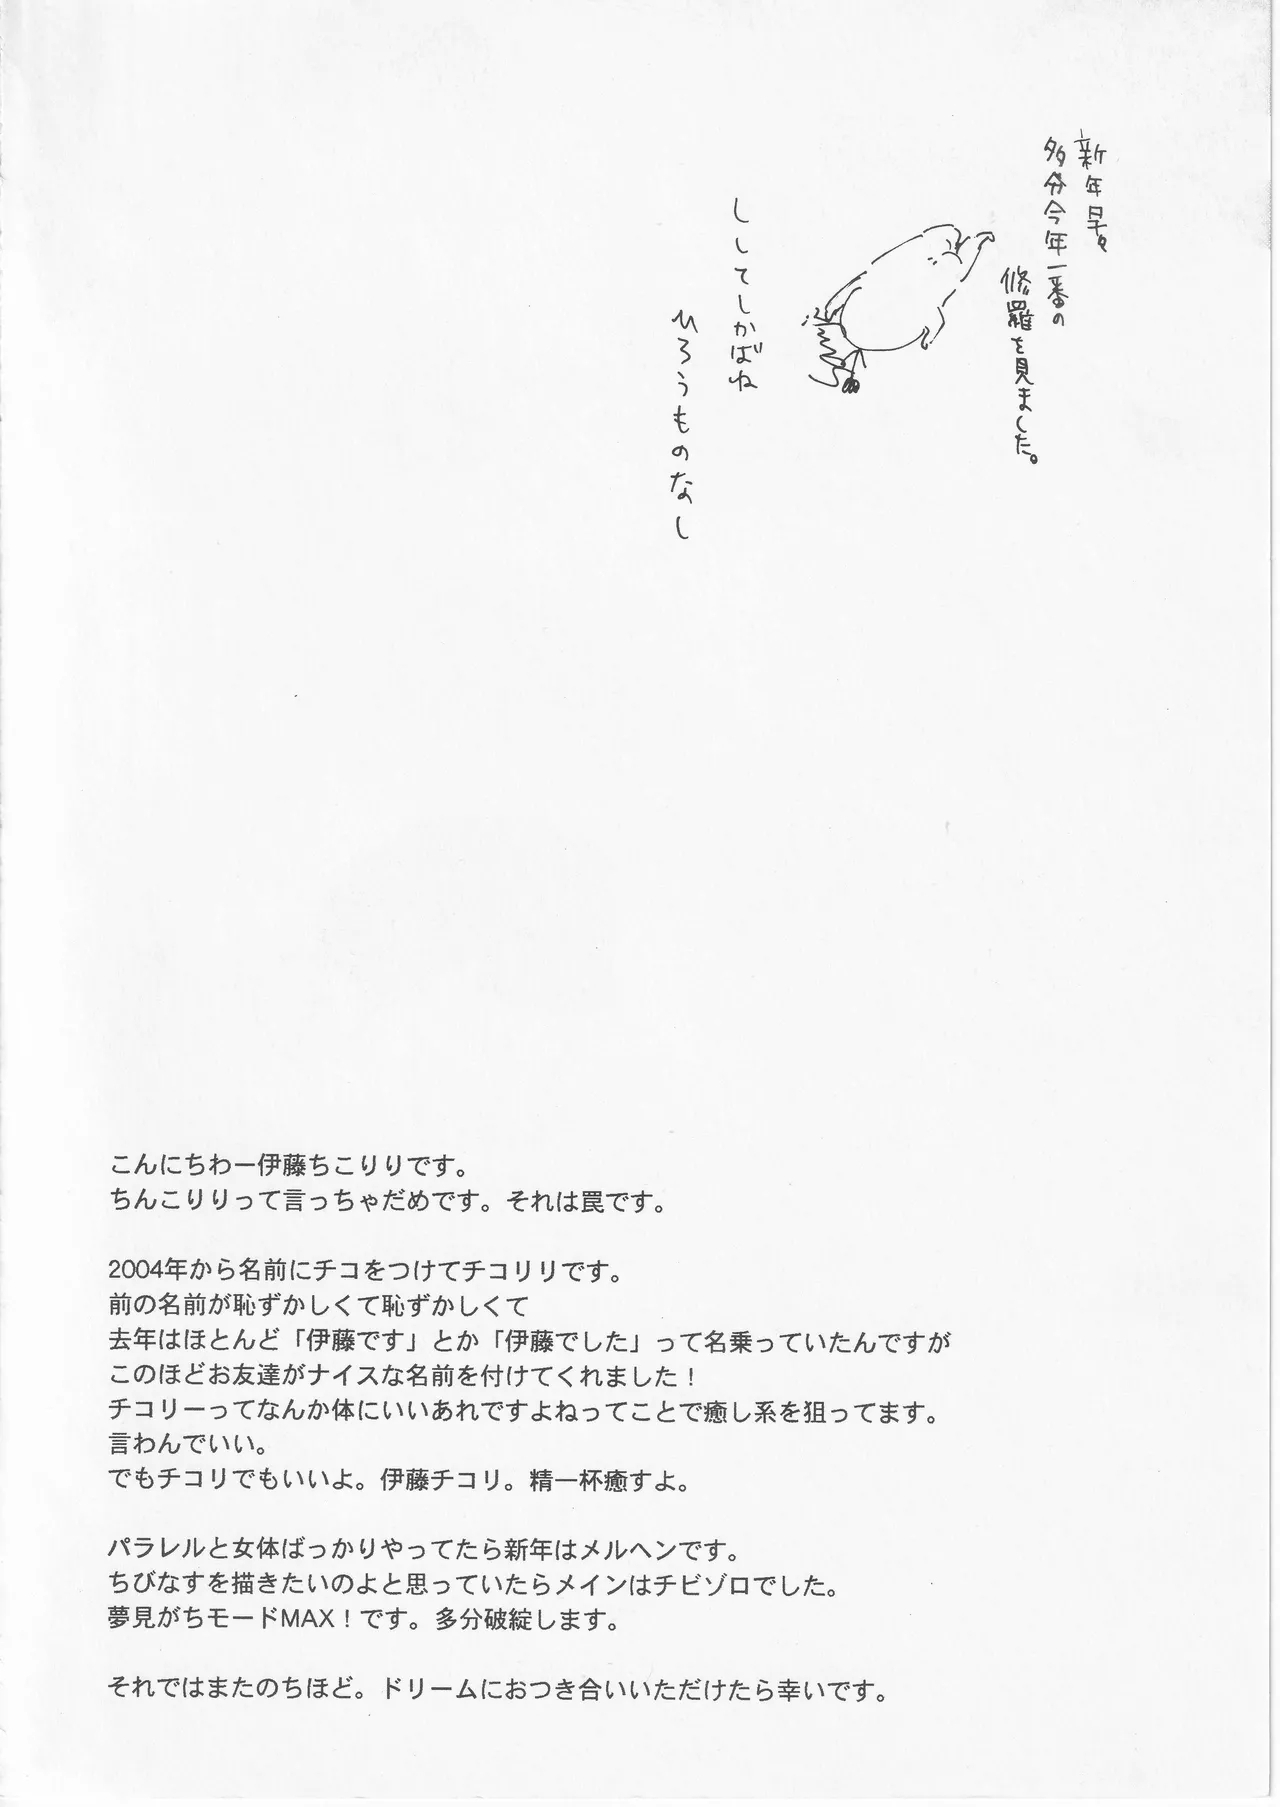 新年早々
多分今年一番の
修羅を見ました。
ししてしかばね
ひろうものなし
こんにちわー伊藤ちこりりです。
ちんこりりって言っちゃだめです。それは罠です。
2004年から名前にチコをつけてチコリリです。
前の名前が恥ずかしくて恥ずかしくて
去年はほとんど「伊藤です」とか「伊藤でした」って名乗っていたんですが
このほどお友達がナイスな名前を付けてくれました！
チコリーってなんか体にいいあれですよねってことで癒し系を狙ってます。
言わんでいい。
でもチコリでもいいよ。伊藤チコリ。精一杯癒すよ。
パラレルと女体ばっかりやってたら新年はメルヘンです。
ちびなすを描きたいのよと思っていたらメインはチビゾロでした。
夢見がちモードMAX！です。多分破綻します。
それではまたのちほど。ドリームにおつき合いいただけたら幸いです。